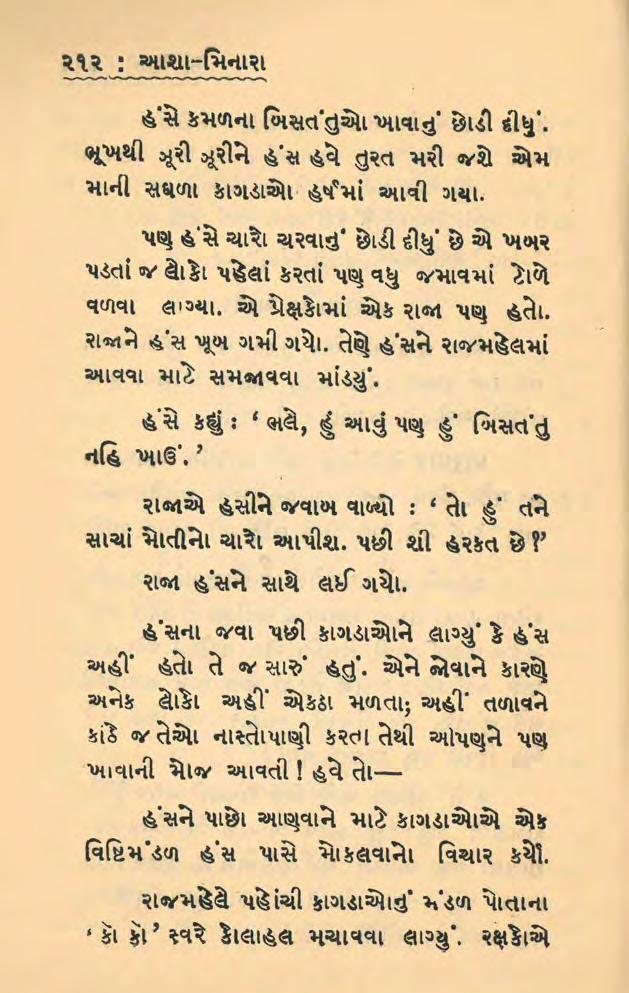 ૨૧૨ : આશા-મિનારા
હંસે કમળના બિસતંતુઓ ખાવાનું છોડી દીધું.
ભૂખથી ઝૂરી ઝૂરીને હંસ હવે તુરત મરી જશે એમ
માની સઘળા કાગડાઓ હર્ષમાં આવી ગયા.
પણ હંસે ચારો ચરવાનું છોડી દીધું છે એ ખબર
પડતાં જ લોકો પહેલાં કરતાં પણ વધુ જમાવમાં ટોળે
વળવા લાગ્યા. એ પ્રેક્ષકોમાં એક રાજા પણ હતો.
રાજાને હંસ ખૂબ ગમી ગયો. તેણે હંસને રાજમહેલમાં
આવવા માટે સમજાવવા માંડયું.
હંસે કહ્યું : ‘ ભલે, હું આવું પણ હું બિસતંતુ
નહિ ખાઉં. ’
રાજાએ હસીને જવાબ વાળ્યો : ‘ તો હું તને
સાચાં મોતીનો ચારો આપીશ. પછી શી હરકત છે ?’
રાજા હંસને સાથે લઈ ગયો.
હંસના જવા પછી કાગડાઓને લાગ્યું કે હંસ
અહીં હતો તે જ સારું હતું. એને જોવાને કારણે
અનેક લોકો અહીં એકઠા મળતા; અહીં તળાવને
કાંઠે જ તેઓ નાસ્તોપાણી કરતા તેથી આપણને પણ
ખાવાની મોજ આવતી ! હવે તો—
હંસને પાછો આણવાને માટે કાગડાઓએ એક
વિષ્ટિમંડળ હંસ પાસે મોકલવાનો વિચાર કર્યો.
રાજમહેલે પહોંચી કાગડાઓનું મંડળ પોતાના
‘ કૉ કૉ ’ સ્વરે કોલાહલ મચાવવા લાગ્યું. રક્ષકોએ